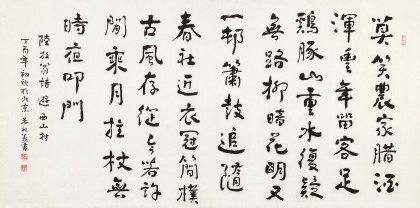 莫笑農家臘酒
渾豐年留客足
鷄豚山重水復疑
無路柳暗花明又
一邨簫鼓追隨
春社近衣冠簡樸
古風存從今若許
閒乘月拄杖無
時夜叩門
陸放翁詩遊西山村
丁酉年初秋於北京